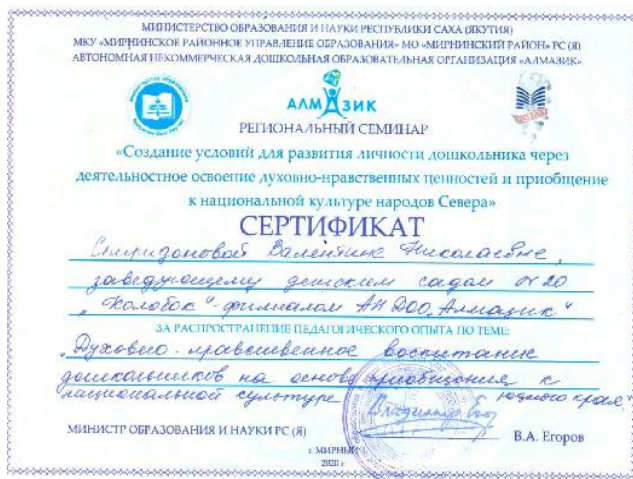 МИНИСТЕРСТВО ОБРАЗОВАНИЯ И НАУКИ РЕСПУБЛИКИ САХА (ЯКУТИЯ)
МКУ «МИРНИНСКОЕ РАЙОННОЕ УПРАВЛЕНИЕ ОБРАЗОВАНИЯ» МО «МИРНИНСКИЙ РАЙОН» РС (Я)
АВТОНОМНАЯ НЕКОММЕРЧЕСКАЯ ДОШКОЛЬНАЯ ОБРАЗОВАТЕЛЬНАЯ ОРГАНИЗАЦИЯ «АЛМАЗИК»
АЛМАЗИК
РЕГИОНАЛЬНЫЙ СЕМИНАР
«Создание условий для развития личности дошкольника через
деятельностное освоение духовно-нравственных ценностей и приобщение
к национальной культуре народов Севера»
СЕРТИФИКАТ
Валентине Николаевне,
заведующему детским садом № 20
"Колобок" - филиалом АН ДОО "Алмазик"
ЗА РАСПРОСТРАНЕНИЕ ПЕДАГОГИЧЕСКОГО ОПЫТА ПО ТЕМЕ:
"Духовно-нравственное воспитание
дошкольников на основе приобщения к
национальной культуре края"
МИНИСТР ОБРАЗОВАНИЯ И НАУКИ РС (Я) В.А. Егоров
г. МИРНЫЙ
2020 г.